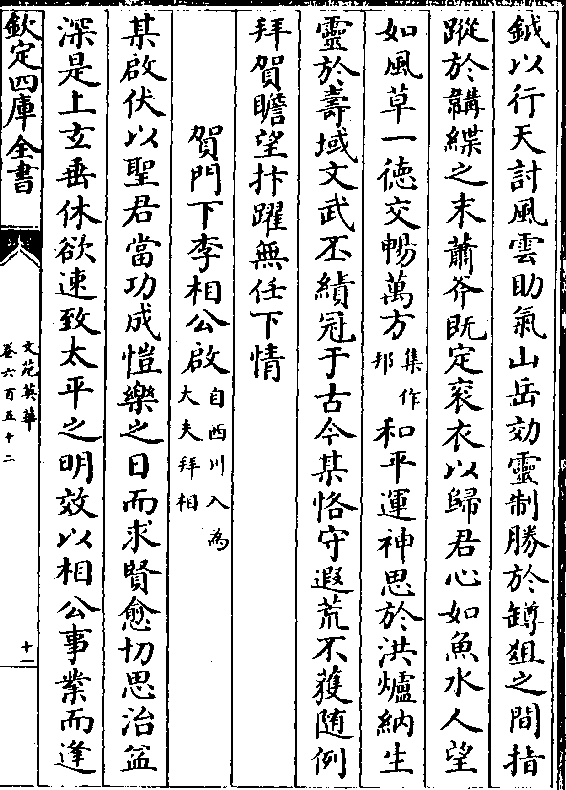 鉞以行天討風雲助氣山岳効靈制勝於罇爼之間指
蹤於韝緤之末蕭斧既定衮衣以歸君心如魚水人望
如風草一徳交暢萬方集作邦和平運神思於洪爐納生
靈於壽域文武丕績冠于古今某恪守遐荒不獲随例
拜賀瞻望抃躍無任下情
賀門下李相公啟自西川入為大夫拜相
某啟伏以聖君當功成愷樂之日而求賢愈切思治益
深是上玄垂休欲速致太平之明效以相公事業而逢
欽定四庫全書
文苑英華
卷六百五十二
十一